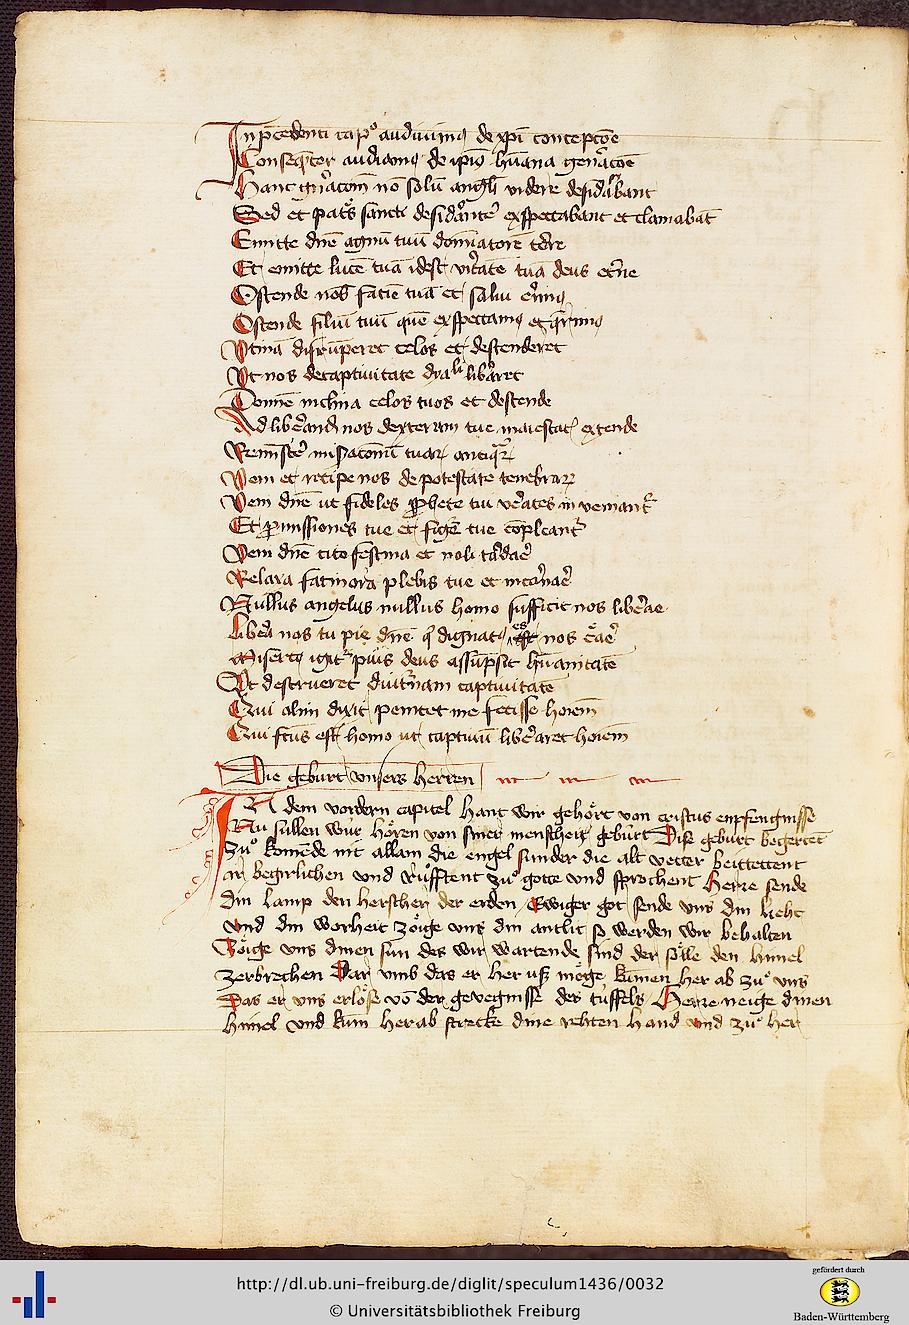 In p̄cedenti cap̊ audiuimꝯ de xp̄i concepcōe
Conseq̄nter audiamꝯ de ip̄iꝯ hūana gen̄acōe
Hanc gn̄acōm nō solū angl̄i videre desid̓abant
Sed et pat̓s sancti desid̓ant̓ exspectabant et clamabāt
Emitte dn̄e agnū tuū domīatorē t̓re
Et emitte lucē tuā idest v̓itatē tuā deus et̓ne
Ostende nob̄ faciē tuā et salui e̓imꝯ
Ostende filiū tuū quē exspectamꝯ et q̄rimꝯ
Vtinā disrūperet celos et descenderet
Vt nos decaptiuitate dyaᵇˡⁱ lib̓aret
Domīe inclina celos tuos et descende
Ad lib̓and nos dexteram tue maiestat̄ extende
Reminisc̓e mis̓acionū tuaꝝ antiq̄ꝝ
Veni et recipe nos de potestate tenebraꝝ
Veni dn̄e ut fideles ꝓphete tui ve̓aces inveniant̓
Et ꝓmissiones tue et figꝰe tue cōpleant̓
Veni dn̄e cito festina et noli ta̓dae̓
Relaxa facinora plebis tue et incarnae̓
Nullus angelus nullus homo sufficit nos lib̓are
Lib̓a nos tu pie dn̄e q̓ dignatꝯ es nos c̓ae̓
Mis̓tꝯ igit̓ piꝰ deus assūpsit hūanitatē
Vt destrueret diut̓nam captiuitatē
Qui olim dixit penitet me fecisse hoiem̄
Qui fc̄us est homo ut captiuū lib̓aret hoiem̄
Die geburt vnsers herren
IN dem vordern capitel hant wir gehört von cristus enpfengnisse
Nu sullen wir hören von siner menscheit geburt Dise geburt begertēt
zů komēde nit allain die engel sunder die alt vetter beittettent
ir begirlichen vnd růfftent zů gotte vnd sprochent Herre sende
din lamp den herscher der erden Ewiger got sende vns din lieht
vnd din worheit zöige vns din antlit so werden wir behalten
Zöige vns dinen sun des wir wartende sind der sölle den himel
zerbrechen Dar vmb das er her uß möge kumen her ab zů vns
Das er vns erlöse vō der gevegnisse des tüffels Herre neige dinen
himel vnd kum herab strecke dine rehten hand vnd zů her
http://dl.ub.uni-freiburg.de/diglit/speculum1436/0032
© Universitätsbibliothek Freiburg
gefördert durch
Baden-Württemberg